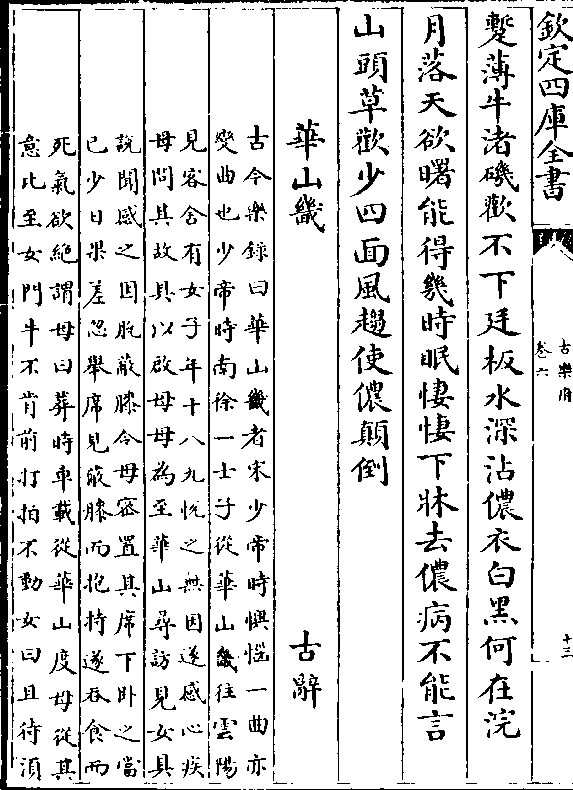 欽定四庫全書
古樂府
卷六
十三
蹔薄牛渚磯歡不下廷板水深沾儂衣白黑何在浣
月落天欲曙能得幾時眠悽悽下牀去儂病不能言
山頭草歡少四面風趨使儂顛倒
華山畿　古辭
古今樂録曰華山畿者宋少帝時懊惱一曲亦
變曲也少帝時南徐一士子從華山畿往雲陽
見客舍有女子年十八九悅之無因遂感心疾
母問其故具以啟母母為至華山尋訪見女具
說聞感之因脫蔽膝令母宻置其席下卧之當
已少日果差忽舉席見蔽膝而抱持遂吞食而
死氣欲絶謂母曰葬時車載從華山度母從其
意比至女門牛不肯前打拍不動女曰且待須